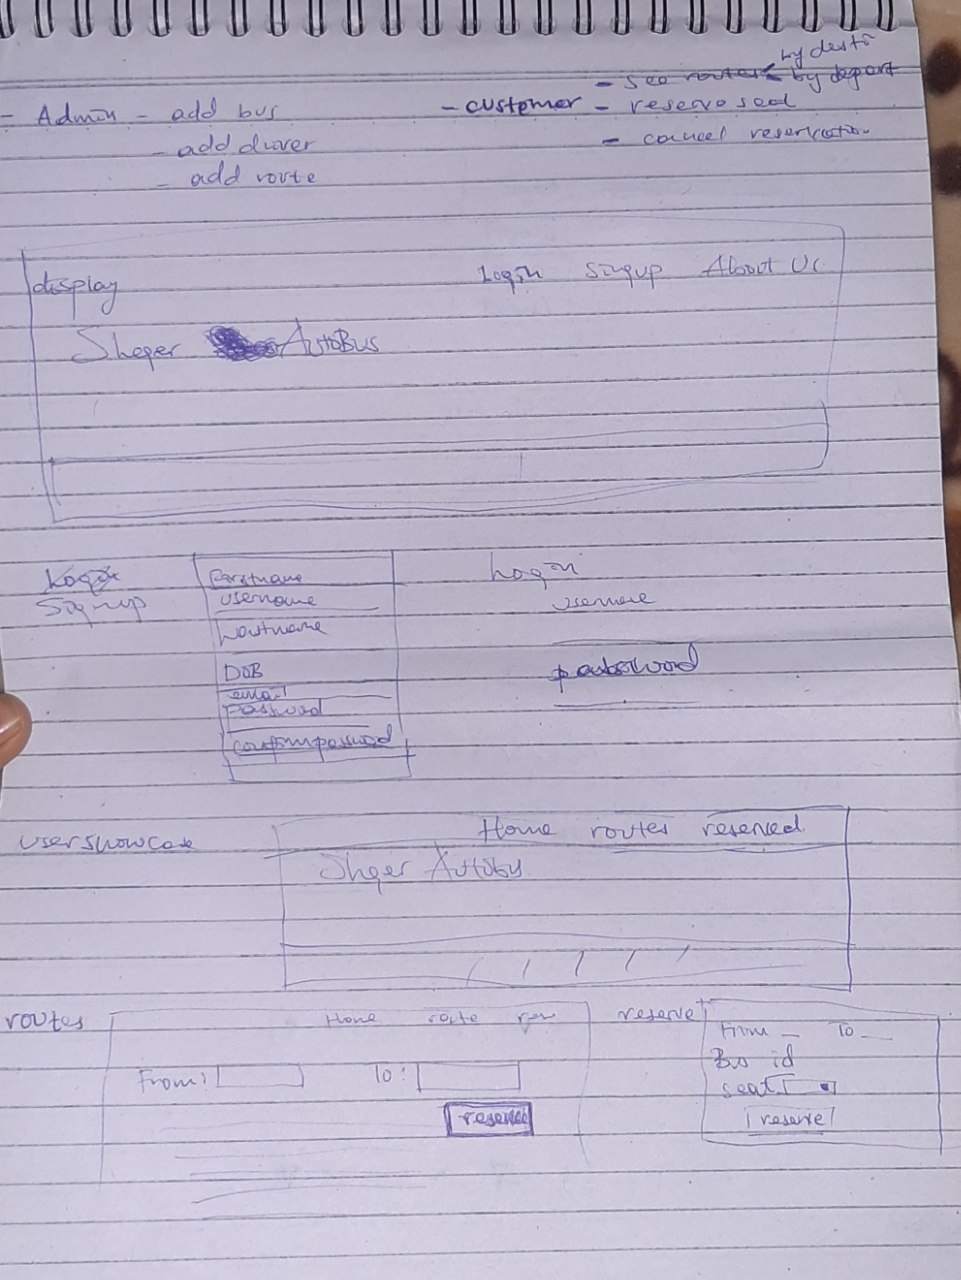 by desti
- see routes by depart
- Admin - add bus
- customer - reserve seat
- add driver
- cancel reservation
- add route
display
Login Signup About Us
Sheger AutoBus
Login
Signup
Firstname
username
Lastname
DOB
email
password
confirm password
Login
username
password
user showcase
Home routes reserved
Sheger Autobus
routes
Home route
From: To:
reserve
reserve
From To
Bus id
seat
reserve